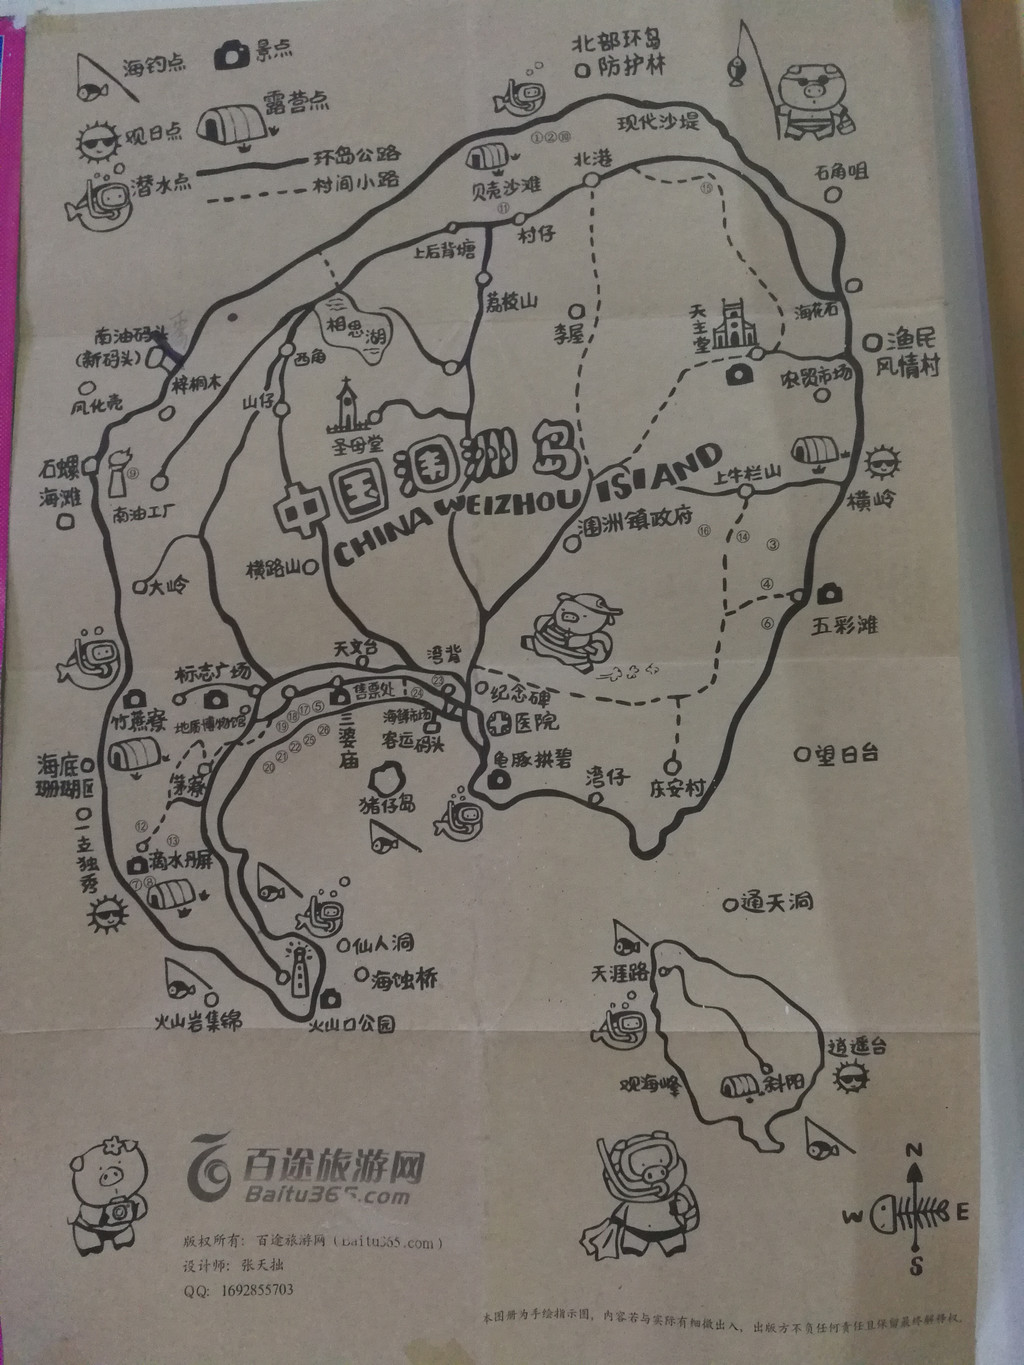 海钓点
景点
观日点
露营点
潜水点
环岛公路
村间小路
北部环岛
防护林
现代沙堤
①②⑩
北港
贝壳沙滩
⑪
⑮
石角咀
上后背塘
村仔
荔枝山
李屋
天主堂
海花石
南油码头
(新码头)
相思湖
西角
渔民
风情村
农贸市场
风化壳
梓桐木
山仔
圣母堂
石螺
海滩
⑨
南油工厂
中国涠洲岛
CHINA WEIZHOU ISLAND
上牛栏山
横岭
涠洲镇政府
⑯
⑭
③
④
⑥
横路山
大岭
五彩滩
天文台
湾背
标志广场
售票处
㉓
㉔
纪念碑
竹蕉寮
地质博物馆
⑲⑱⑰⑤
三婆庙
海鲜市场
客运码头
医院
⑳㉑㉒㉕㉖
龟豚拱碧
海底
珊瑚区
茅寮
猪仔岛
湾仔
庄安村
望日台
一立独秀
⑫
⑬
滴水丹屏
⑦⑧
通天洞
仙人洞
海蚀桥
天涯路
火山岩集锦
火山口公园
逍遥台
观海峰
斜阳
百途旅游网
Baitu365.com
版权所有：百途旅游网（Baitu365.com）
设计师：张天拙
QQ：1692855703
N
W E
S
本图册为手绘指示图，内容若与实际有细微出入，出版方不负任何责任且保留最终解释权.